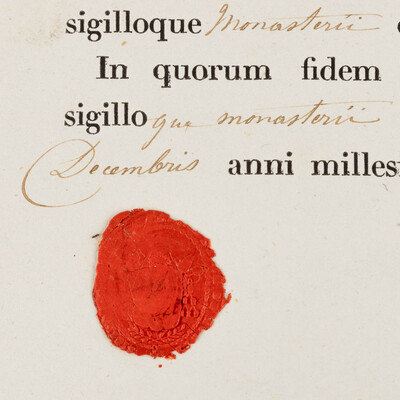 sigilloque Monasterii
In quorum fidem
sigilloque monasterii
Decembris anni milles